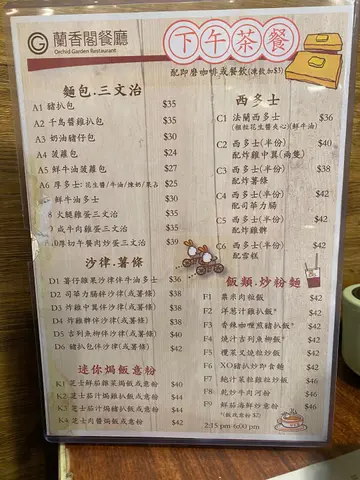 蘭香閣餐廳
Orchid Garden Restaurant
下午茶餐
配即磨咖啡或餐飲(凍飲加$3)
麵包.三文治
A1 豬扒包 $35
A2 千島醬雞扒包 $35
A3 奶油豬仔包 $30
A4 菠蘿包 $24
A5 鮮牛油菠蘿包 $27
A6 厚多士:花生醬/牛油/煉奶/果占 $25
鮮牛油多士 $30
8 火腿雞蛋三文治 $35
9 咸牛肉雞蛋三文治 $35
A10厚切午餐肉炒蛋三文治 $39
沙律.薯條
D1 薯仔雞果沙律伴牛油多士 $36
D2 司華力腸拌沙律(或薯條) $38
D3 炸雞中翼伴沙律(或薯條) $40
D4 炸雞髀伴沙律(或薯條) $42
D5 吉列魚柳伴沙律(或薯條) $42
D6 豬扒包伴沙律(或薯條) $42
迷你焗飯意粉
K1 芝士鮮茄雞蓉焗飯或意粉 $40
K2 芝士茄汁焗雞扒飯或意粉 $44
K3 芝士茄汁焗豬扒飯或意粉 $44
K4 芝士肉醬焗飯或意粉 $42
西多士
C1 法蘭西多士 $36
(粗粒花生醬夾心)(鮮牛油)
C2 西多士(半份) $40
配炸雞中翼(兩隻)
C3 西多士(半份) $38
配炸薯條
C4 西多士(半份) $42
配司華力腸
C5 西多士(半份) $42
配炸雞髀
C6 西多士(半份) $42
配雪糕
飯類.炒粉麵
F1 粟米肉粒飯 $42
F2 洋葱汁雞扒飯* $42
F3 香辣咖喱煎豬扒飯* $42
F4 燒汁吉列魚柳飯* $42
F5 欖菜叉燒粒炒飯 $42
F6 XO豬扒炒即食麵 $42
F7 鮑汁菜粒雞粒炒飯 $46
F8 乾炒牛肉河粉 $46
F9 鮮茄海鮮炒意粉 $46
*(飯改意粉 $2)
2:15 pm-6:00 pm